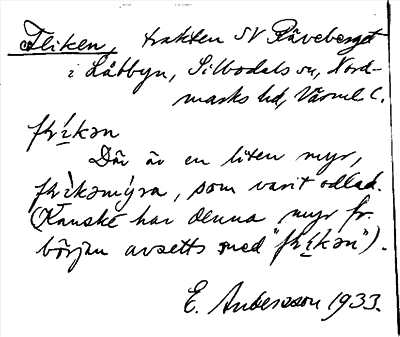 Fliken, trakten SV Räveberget
i Låbbyn, Silbodals sn, Nord-
marks hd, Värml. l.
Där är en liten myr,
som varit odlad.
(Kanske har denna myr fr.
början avsetts med
E. Andersson 1933.